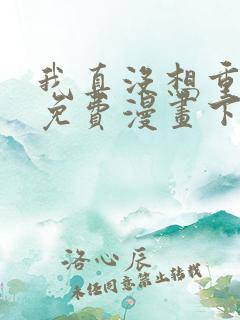 我真没想重
免费漫画下
洛心辰
未经同意禁止转载